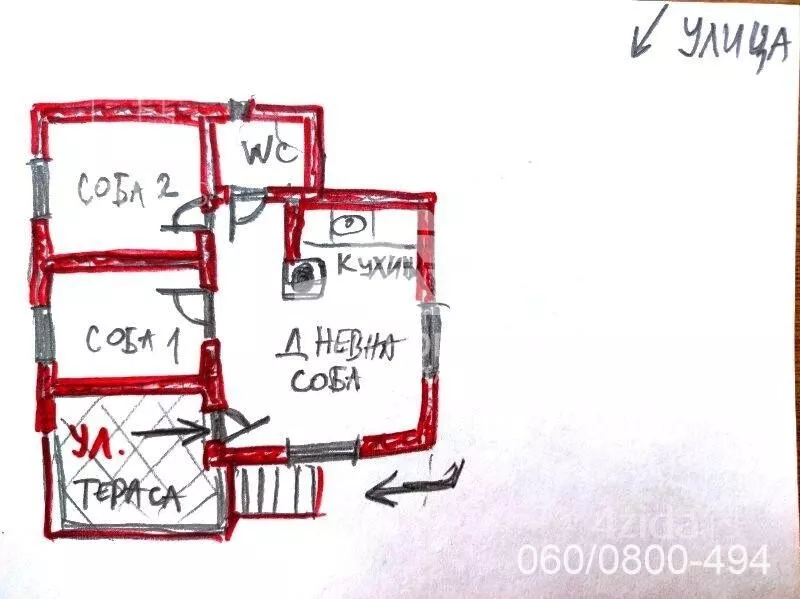 УЛИЦА
WC
СОБА 2
КУХИЊ
СОБА 1
ДНЕВНА
СОБА
УЛ.
ТЕРАСА
4zida
060/0800-494